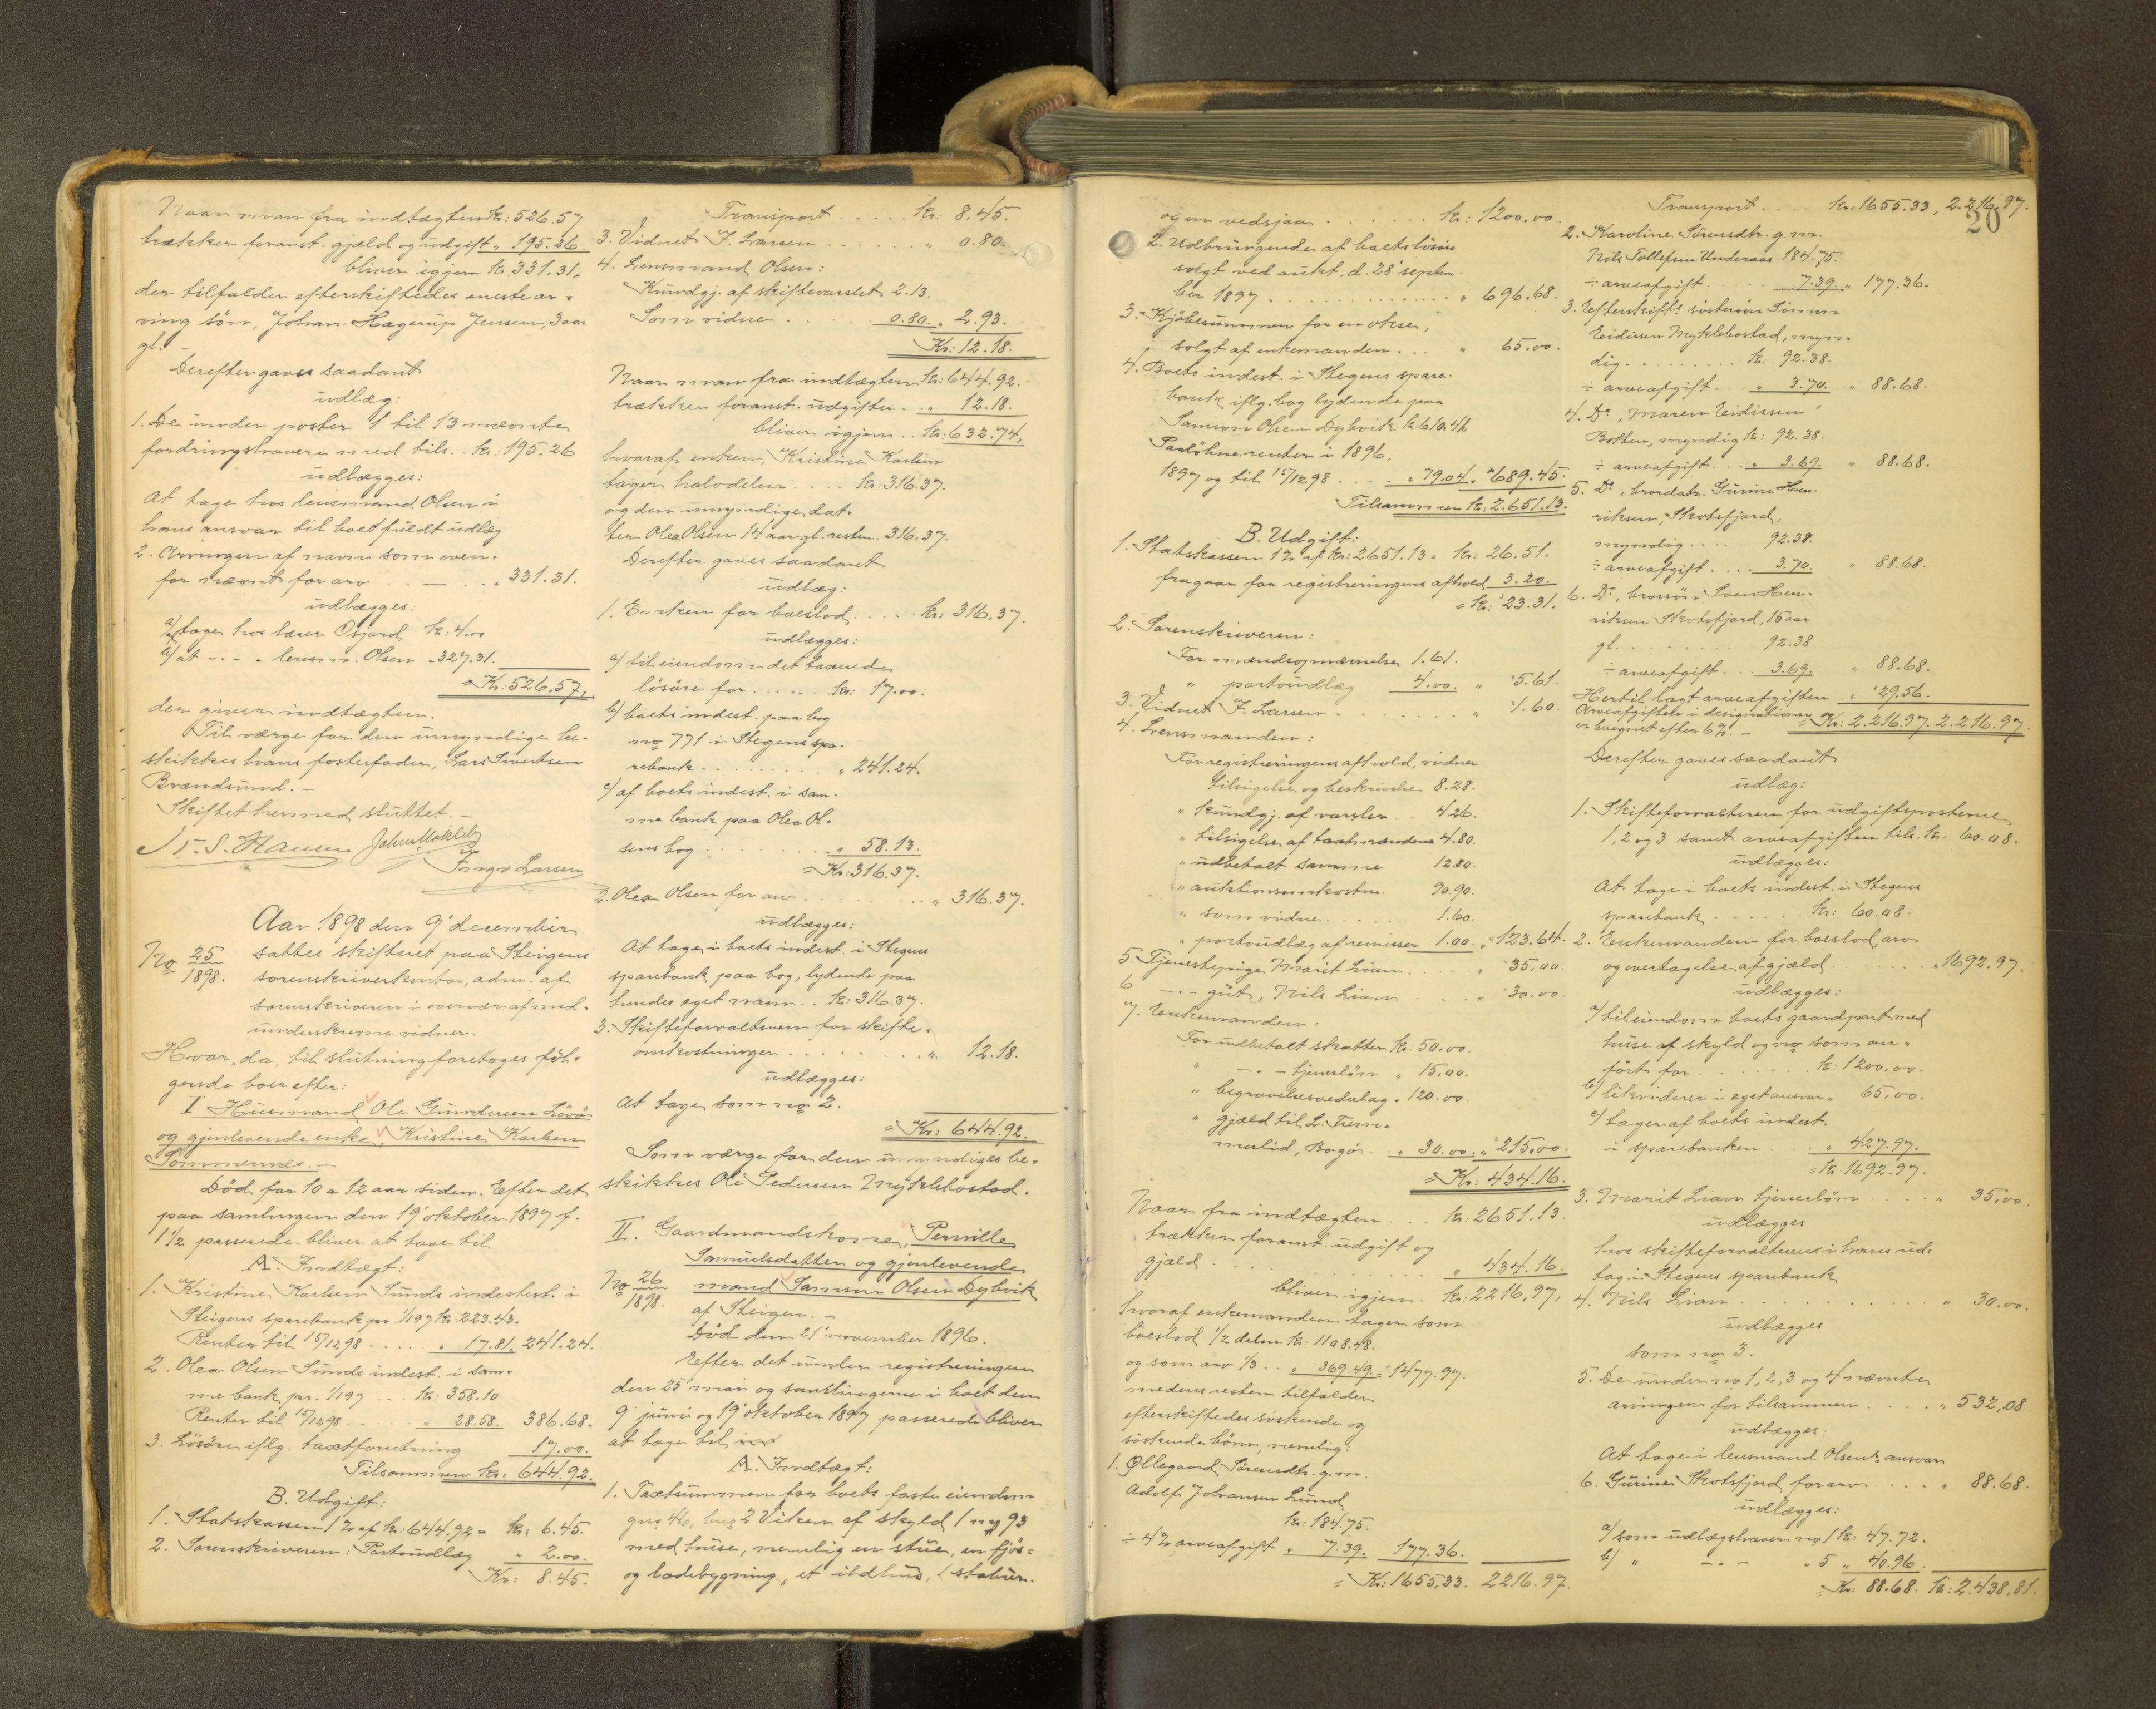 Naar man fra indtægten kr: 526.57
trækker foranst. gjæld og udgift " 195.26
bliver igjen kr. 331.31,
der tilfalder efterskiftedes eneste ar-
ving søn, Johan Hagerup Jensen, 3 aar
gl. -
Derefter gaves saadant
udlæg:
1. De under poster 1 til 13 nævnte
fordringshavere med tils. kr: 195.26
udlægges:
At tage hos lensmand Olsen i
hans ansvar til boet fuldt udlæg
2. Arvingen af navn som oven-
for nævnt for arv . - . . " 331.31.
udlægges:
a/ at tage hos lærer Osjord kr: 4.00
b/ at - . - " lensm. Olsen " 327.31.
= Kr: 526.57,
der giver indtægten.
Til værge for den umyndige be-
skikkes hans fosterfader, Lars Sivertsen
Brændsund. -
Skiftet hermed sluttet. -
N. S. Hansen John Møklebÿ
Ingv. Larsen
Aar 1898 den 9' december
No 25/1898. sattes skifteret paa Steigens
sorenskriverkontor, adm. af
sorenskriveren i overvær af med-
underskrevne vidner.
Hvor da, til slutning foretoges føl-
gende boer efter:
I Husmand Ole Gundersen Løvø
og gjenlevende enke, Kristine Karlsen
Sommernes. -
Død for 10 a 12 aar siden. Efter det
paa samlingen den 19' oktober 1897 f.
1 1/2 passerede bliver at tage til
A. Indtægt:
1. Kristine Karlsen Sunds indestest. i
Steigens sparebank pr. 1/1 97 kr: 223.43.
Renter til 15/12 98 . . . . . " 17.81. 241.24.
2. Olea Olsen Sunds indest. i sam-
me bank pr. 1/1 97 . . . kr: 358.10
Renter til 15/12 98 . . . . . " 28.58. 386.68.
3. Løsøre iflg. taxtforretning 17.00.
Tilsammen kr. 644.92.
B. Udgift:
1. Statskassen 1 % af kr: 644.92 = kr: 6.45.
2. Sorenskriveren: Portoudlæg " 2.00.
Kr: 8.45.
Transport . . . . . kr: 8.45.
3. Vidnet F. Larsen . . . . . . " 0.80
4. Lensmand Olsen:
Kundgj. af skiftevarslet 2.13.
Som vidne . . . . . 0.80. " 2.93.
Kr: 12.18.
Naar man fra indtægten kr: 644.92.
trækker foranst. udgifter . . " 12.18.
bliver igjen . . kr: 632.74,
hvoraf enken, Kristine Karlsen
tager halvdelen . . . . kr: 316.37.
og den umyndige dat-
ter Olea Olsen 14 aar gl. resten . 316.37.
Derefter gaves saadant
udlæg:
1. Enken for boeslod. . . . kr: 316.37.
udlægges:
a/ til eiendom det taxerede
løsøre for . . . . . kr: 17.00.
b/ boets indest. paa bog
no 771 i Stegens spa-
rebank . . . . . . . . . " 241.24.
c/ af boets indest. i sam-
me bank paa Olea Ol-
sens bog . . . . . . . . . " 58.13.
= Kr: 316.37.
2. Olea Olsen for arv . . . . . . . . . " 316.37.
udlægges:
At tage i boets indest. i Stegens
sparebank paa bog, lydende paa
hendes eget navn . . kr: 316.37.
3. Skifteforvalteren for skifte-
omkostninger . . . . . . . . . ". 12.18.
udlægges:
At tage som no 2.
= Kr: 644.92.
Som værge for den umyndiges be-
skikkes Ole Pedersen Myklebostad.
II. Gaardmandskone, Pernille
Samuelsdatter og gjenlevende
No 26/1898. mand Samson Olsen Dybvik
af Steigen. -
Død den 21' november 1896.
Efter det under registreringen
den 25' mai og samlingerne i boet den
9' juni og 19' oktober 1897 passerede bliver
at tage til
A. Indtægt:
1. Taxtsummen for boets faste eiendom
gno 46, bno 2 Viken af skyld 1 my 93
med huse, nemlig en stue, en fjøs-
og ladebygning, et ildhus, 1 stabur.
og en vedsjaa . . . . . . kr: 1200.00.
2. Udbringende af boets løsøre
solgt ved aukt. d. 28' septem-
ber 1897 . . . . . . . . . . . . . " 696.68.
3. Kjøbesummen for en okse,
solgt af enkemanden . . . " 65.00.
4. Boets indest. i Stegens spare-
bank iflg. bog lydende paa
Samson Olsen Dybvik kr 610.41.
Paaløbne renter i 1896,
1897 og til 15/12 98 . . . . . " 79.04. " 689.45.
Tilsammen kr: 2.651.13.
B. Udgift:
1. Statskassen 1 % af kr: 2651.13 = kr: 26.51.
fragaar for registreringens afhold 3.20.
= kr: 23.31.
2. Sorenskriveren:
For mændsopnævnelse 1.61.
" portoudlæg 4.00. " 5.61.
3. Vidnet F. Larsen . . . . . . . . " 1.60.
4. Lensmanden:
For registreringens afhold, vidner
tilsigelse og beskrivelse 8.28.
" kundgj. af varsler . . 4.26.
" tilsigelse af taxtmændene 4.80.
" udbetalt samme 12.80.
" auktionsomkostn. 90.90.
" som vidne . . . . . . 1.60.
" portoudlæg af remisser 1.00. " 123.64.
5. Tjenestepige Marit Lian . . . . . " 35.00
6 - . - gut, Nils Lian . . . . " 30.00
7. Enkemanden:
For udbetalt skatter kr: 50.00.
" - . - tjenerløn " 15.00.
" begravelsesvederlag " 120.00.
" gjæld til L. Trem-
merlid, Bogø . . " 30.00. " 215.00.
= Kr: 434.16.
Naar fra indtægten . . . kr: 2651.13
trækker foranst. udgift og
gjæld . . . . . . . . . . . . . . . " 434.16.
bliver igjen . kr: 2216.97,
hvoraf enkemanden tager som
boeslod 1/2 delen kr: 1108.48.
og som arv 1/3 . . " 369.49. = 1477.97.
medens resten tilfalder
efterskiftedes søskende og
søskendebørn, nemlig:
1. Øllegaard Sørensdtr. g. m.
Adolf Johansen Lund
kr: 184.75.
÷ 4 % arveafgift " 7.39. 177.36.
= Kr: 1655.33. 2216.97.
20
Transport . . . . kr: 1655.33, 2.216.97.
2. Karoline Sørensdtr. g. m.
Nils Tollefsen Underaas 184.75.
÷ arveafgift . . . . . 7.39. " 177.36.
3. Efterskift.s søstersøn Simon
Eidissen Myklebostad, myn-
dig . . . . . . . . . kr: 92.38.
÷ arveafgift . . . " 3.70. " 88.68.
4. Do, Maren Eidissen
Botten, myndig kr: 92.38.
÷ arveafgift . . . " 3.69. " 88.68.
5. Do, brordatr. Gurine Hen-
riksen, Skotsfjord,
myndig . . . . 92.38.
÷ arveafgift . . . . 3.70. " 88.68.
6. Do, brorsøn Sven Hen-
riksen Skotsfjord, 15 aar
gl. . . . . . . . . . 92.38
÷ arveafgift . . . 3.69. " 88.68.
Hertil lagt arveafgiften " 29.56.
Arveafgiften i designationen = Kr: 2.216.97. 2.216.97.
er beregnet efter 6 %. -
Derefter gaves saadant
udlæg:
1. Skifteforvalteren for udgiftsposterne
1, 2 og 3 samt arveafgiften tils. kr: 60.08.
udlægges:
At tage i boets indest. i Stegens
sparebank . . . . . . kr: 60.08.
2. Enkemanden for boeslod, arv
og overtagelse af gjæld . . . . . . . " 1692.97.
udlægges:
a/ til eiendom boets gaardpart med
huse af skyld og no som an-
ført for . . . . . . . . kr: 1200.00.
b/ likviderer i eget ansvar " 65.00.
c/ tager af boets indest.
i sparebanken . . . " 427.97.
= kr: 1692.97.
3. Marit Lian tjenerløn . . . . . " 35.00.
udlægges
hos skifteforvalteren i hans ud-
tag i Stegens sparebank
4. Nils Lian . . . . . . . . . . . " 30.00.
udlægges
som no 3.
5. De under no 1, 2, 3 og 4 nævnte
arvinger for tilsammen . . . . . " 532,08
udlægges:
At tage i lensmand Olsens ansvar
6. Gurine Skotsfjord for arv . . . . " 88.68.
udlægges:
a/ som udlægshaver no 1 kr: 47.72.
b/ " - . - " 5 " 40.96.
Kr: 88.68. kr: 2.438.81.